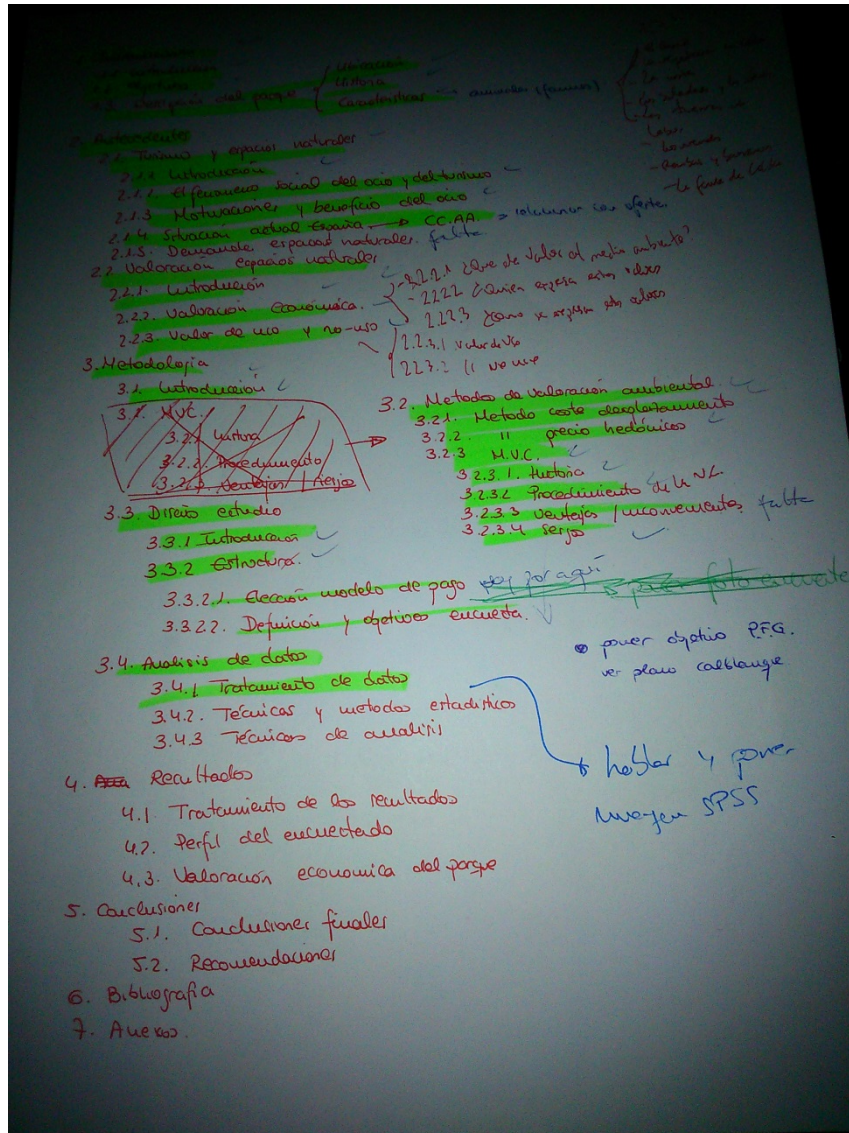 Ubicación
Historia
1.3. Descripción del parque Características → animales (fauna)
2. Antecedentes
2.1. Turismo y espacios naturales
2.1.1 Introducción
2.1.2 El fenomeno social del ocio y del turismo
2.1.3 Motivaciones y beneficio del ocio
2.1.4. Situación actual España → CC.AA. → relacionar con oferta.
2.1.5. Demanda espacios naturales. falta.
2.2 Valoración espacios naturales
2.2.1. Introducción
2.2.2. Valoración económica.
2.2.3. Valor de uso y no-uso
2.2.2.1 ¿ de valor el medio ambiente?
2.2.2.2 ¿Quien expresa estos valores
2.2.2.3 ¿como se expresa estos valores
2.2.3.1 Valor de uso
2.2.3.2 " no uso
3. Metodologia
3.1. Introducción
3.2. M.V.C.
3.2.1 Historia
3.2.2. Procedimiento
3.2.3. Ventajas / riesgos
3.2. Metodos de valoración ambiental.
3.2.1. Metodo coste desplazamiento
3.2.2. " precio hedónicos
3.2.3 M.V.C.
3.2.3.1. Historia
3.2.3.2 Procedimiento de la V.C.
3.2.3.3 ventajas / inconvenientes. falta
3.2.3.4 sesgos
3.3. Diseño estudio
3.3.1 Introducción
3.3.2 Estructura.
3.3.2.1. Elección modelo de pago voy por aquí
3.3.2.2. Definición y objetivos encuesta.
3.4. Analisis de datos
3.4.1 Tratamiento de datos
3.4.2. Técnicas y metodos estadisticos
3.4.3 Técnicas de analisis
poner objetivo P.F.G.
ver plano calblanque
hablar y poner
imagen SPSS
4. Resultados
4.1. Tratamiento de los resultados
4.2. Perfil del encuestado
4.3. Valoración economica del parque
5. Conclusiones
5.1. Conclusiones finales
5.2. Recomendaciones
6. Bibliografia
7. Anexos.